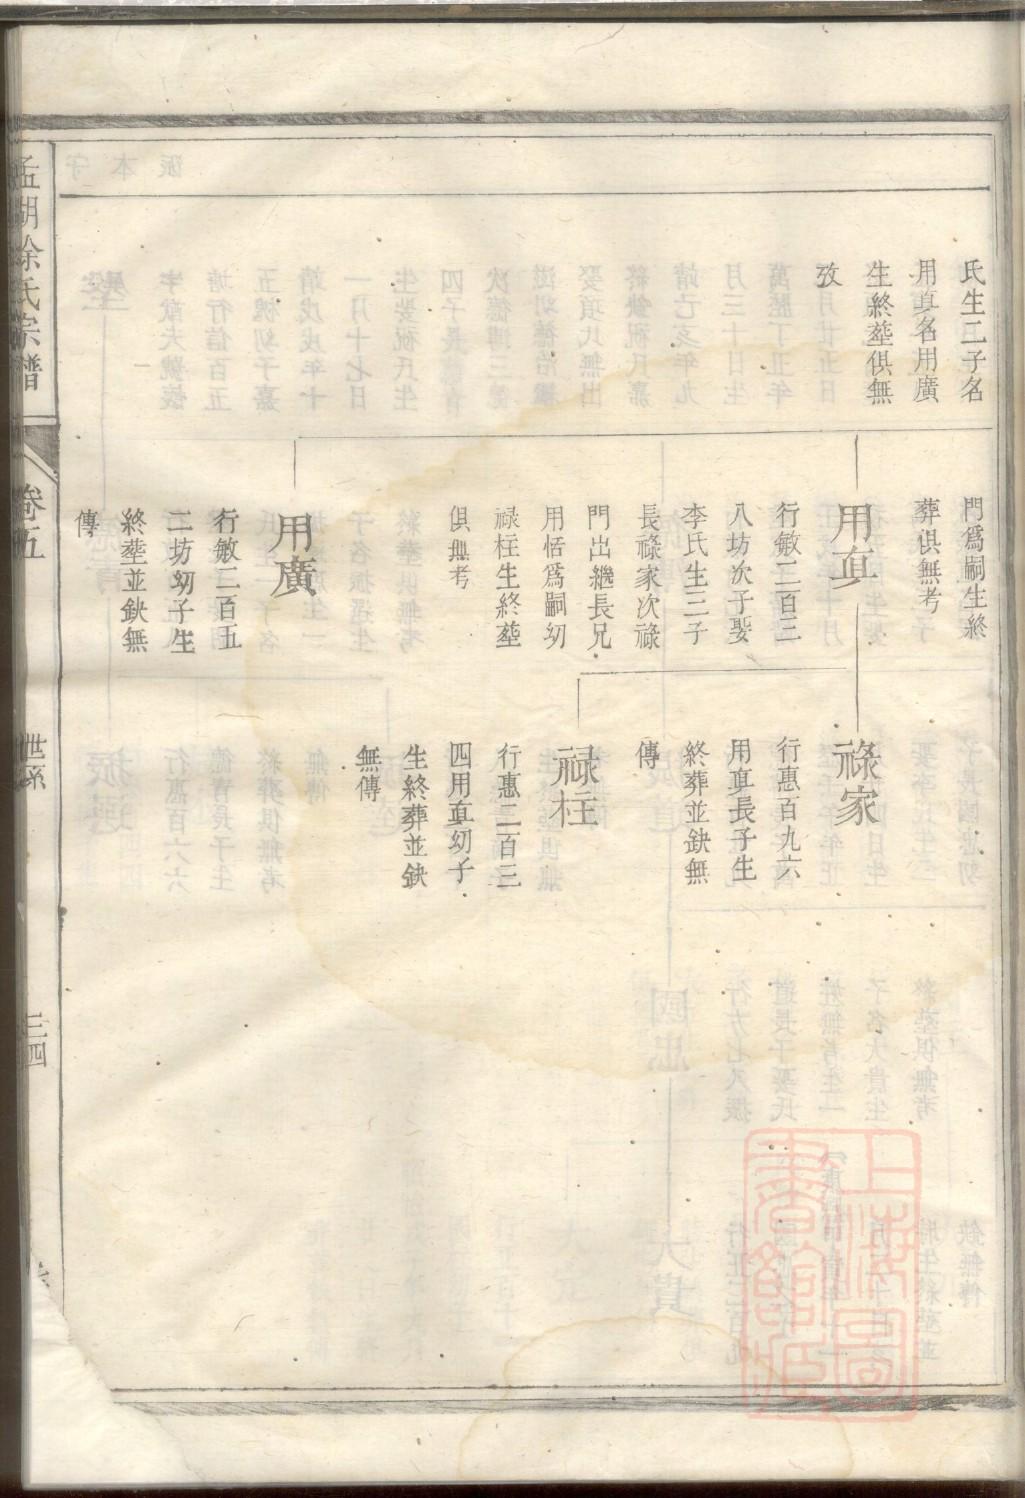 氏生二子名
用真名用廣
生終塟俱無
攷
門爲嗣生終
葬俱無考
用真
行敏二百三
八坊次子娶
李氏生三子
長祿家次祿
門出繼長兄
用恬爲嗣幼
祿柱生終塟
俱無考
用廣
行敏二百五
二坊幼子生
終塟並鈌無
傳
祿家
行惠百九六
用真長子生
終葬並鈌無
傳
祿柱
行惠二百三
四用真幼子
生終葬並鈌
無傳
孟湖徐氏宗譜
卷五
世系
三四
上海圖書館藏